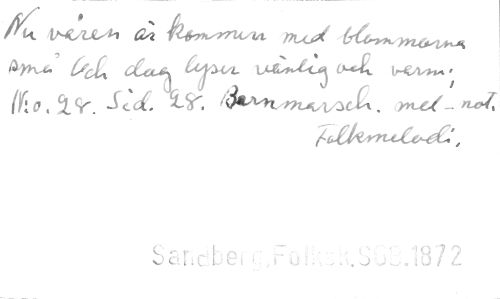 Nu våren är kommen med blommorna
små Och dag lyser vänlig och varm;
N:o. 28. Sid. 28. Barnmarsch. mel-not.
Folkmelodi.
Sandberg, Folksk. SGB. 1872